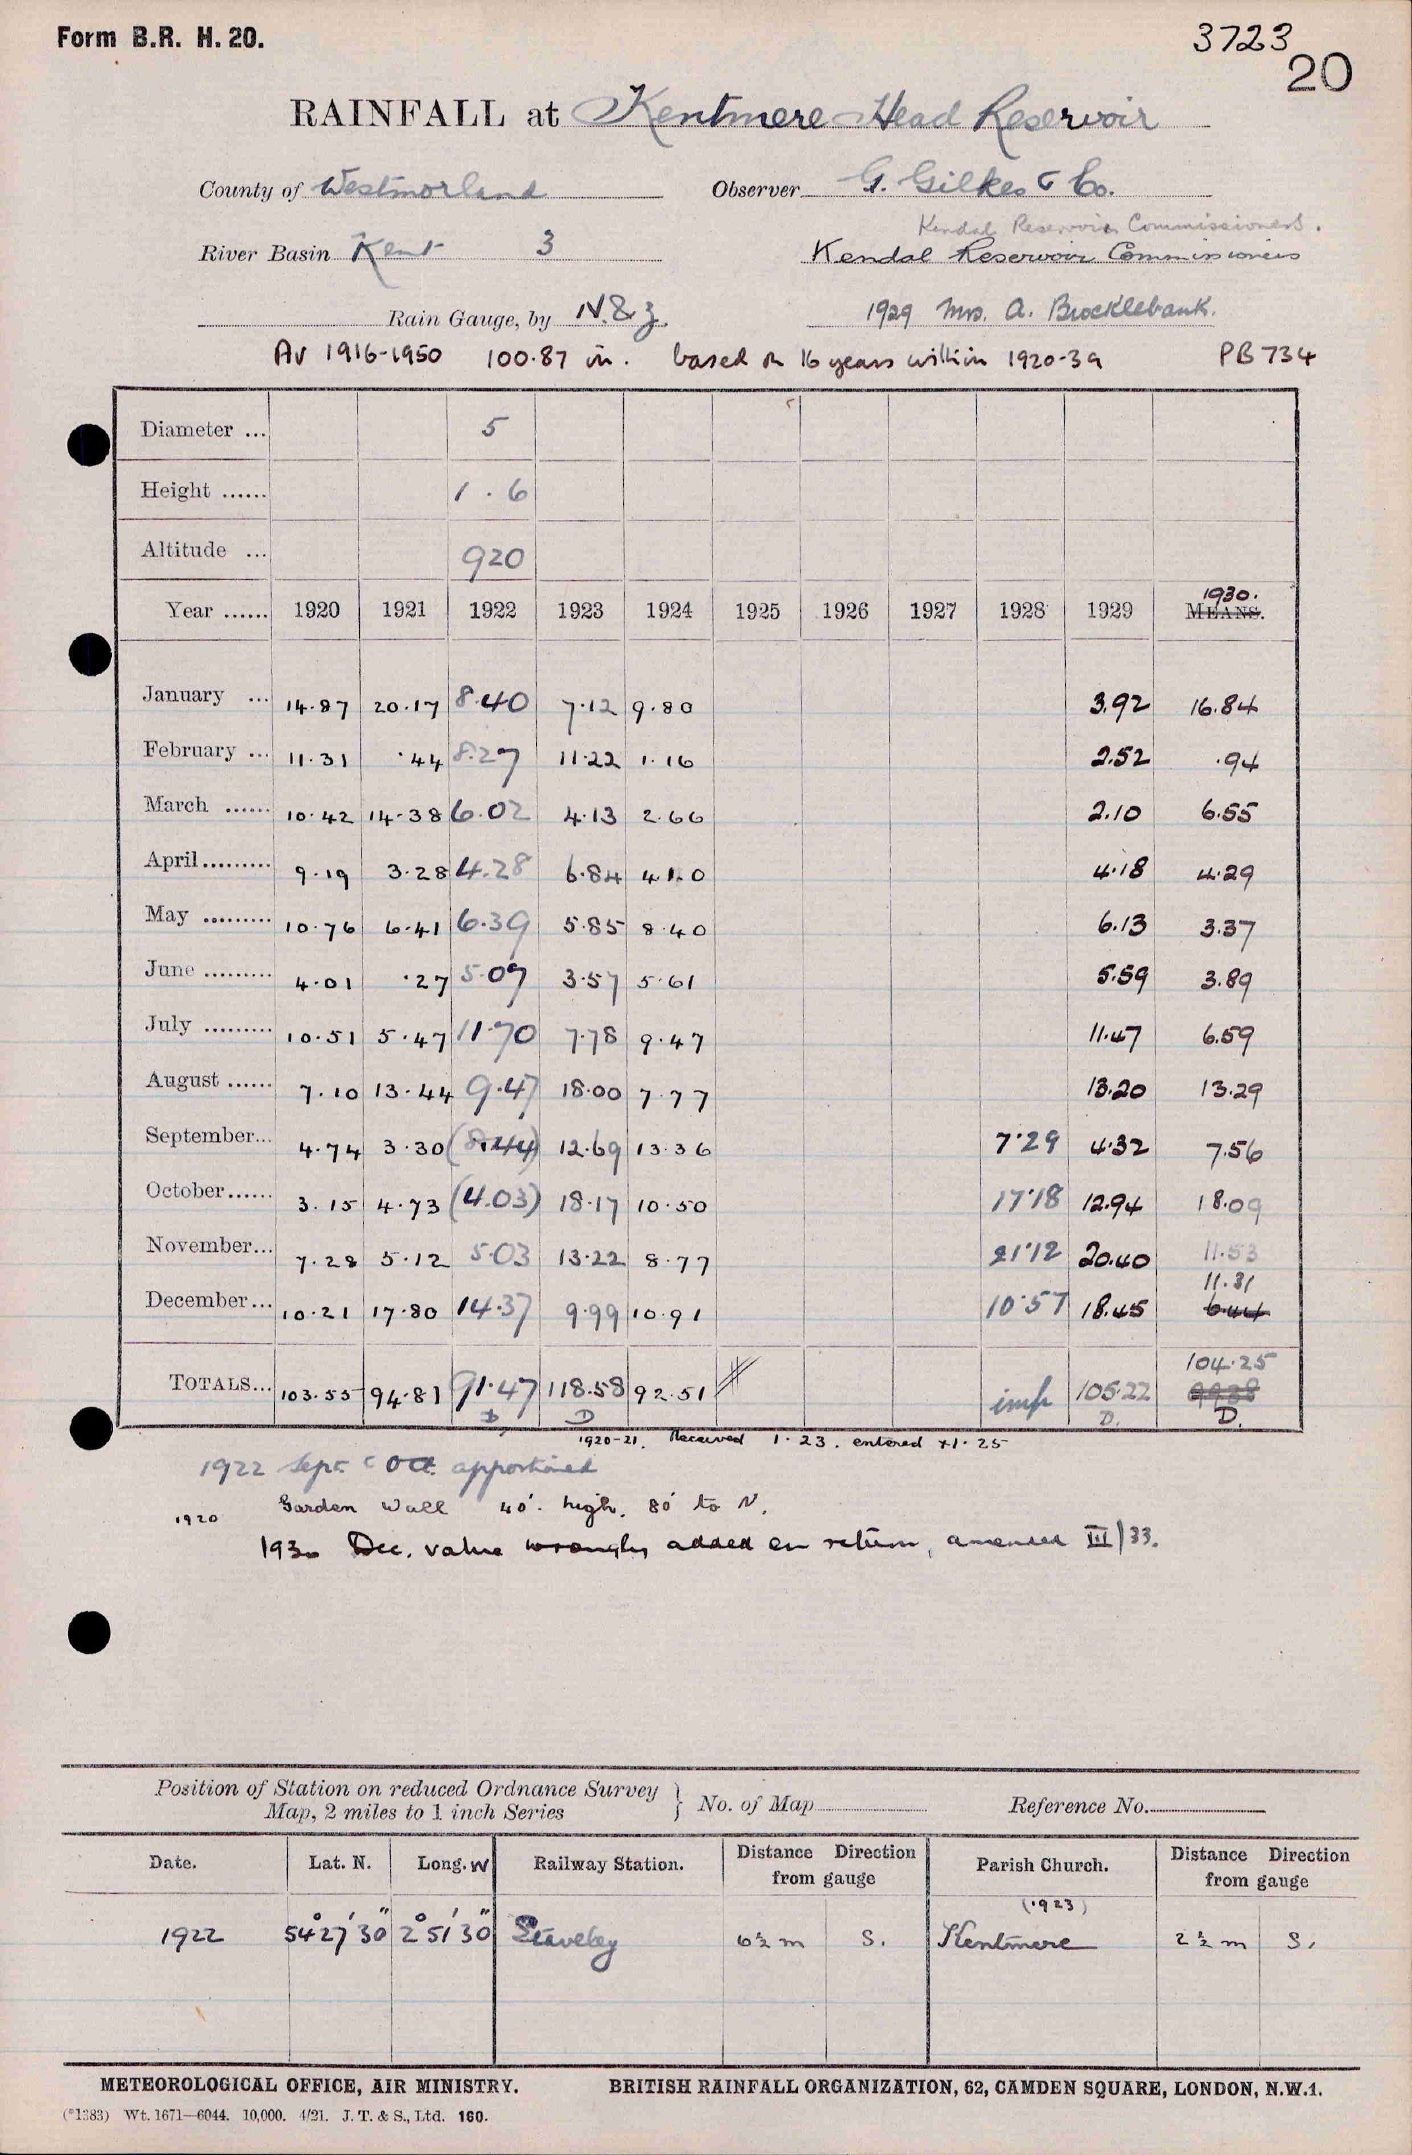 Form B.R. H. 20.
3723
20
RAINFALL at Kentmere Head Reservoir
County of Westmorland Observer G. Gilkes & Co.
Kendal Reservoir Commissioners.
River Basin Kent 3 Kendal Reservoir Commissioners
Rain Gauge, by N.&Z. 1929 Mrs. A. Brocklebank.
Av 1916-1950 100.87 in. based on 16 years within 1920-39 PB 734
Diameter ... 5
Height ...... 1.6
Altitude ... 920
1930.
Year ...... 1920 1921 1922 1923 1924 1925 1926 1927 1928 1929 MEANS.
January ... 14.87 20.17 8.40 7.12 9.80 3.92 16.84
February ... 11.31 .44 8.27 11.22 1.16 2.52 .94
March ...... 10.42 14.38 6.02 4.13 2.66 2.10 6.55
April......... 9.19 3.28 4.28 6.84 4.10 4.18 4.29
May ......... 10.76 6.41 6.39 5.85 8.40 6.13 3.37
June ......... 4.01 .27 5.07 3.57 5.61 5.59 3.89
July ......... 10.51 5.47 11.70 7.78 9.47 11.47 6.59
August ...... 7.10 13.44 9.47 18.00 7.77 13.20 13.29
September... 4.74 3.30 (8.44) 12.69 13.36 7.29 4.32 7.56
October...... 3.15 4.73 (4.03) 18.17 10.50 17.18 12.94 18.09
November... 7.28 5.12 5.03 13.22 8.77 21.12 20.40 11.53
11.31
December... 10.21 17.80 14.37 9.99 10.91 10.57 18.45 6.44
104.25
TOTALS... 103.55 94.81 91.47 118.58 92.51 imp 105.22
D D D. D.
1920-21. Received 1.23. entered
1922 Sept. & Oct. apportioned
1920 Garden Wall 40'. high. 80' to N.
1930 Dec. value wrongly added on return, amended III/33.
Position of Station on reduced Ordnance Survey
Map, 2 miles to 1 inch Series } No. of Map Reference No.
Date. Lat. N. Long. W Railway Station. Distance Direction from gauge Parish Church. Distance Direction from gauge
(1923)
1922 54° 27' 30" 2° 51' 30" Staveley 6½ m S. Kentmere 2½ m S.
METEOROLOGICAL OFFICE, AIR MINISTRY. BRITISH RAINFALL ORGANIZATION, 62, CAMDEN SQUARE, LONDON, N.W.1.
(*1383) Wt. 1671—6044. 10,000. 4/21. J. T. & S., Ltd. 160.